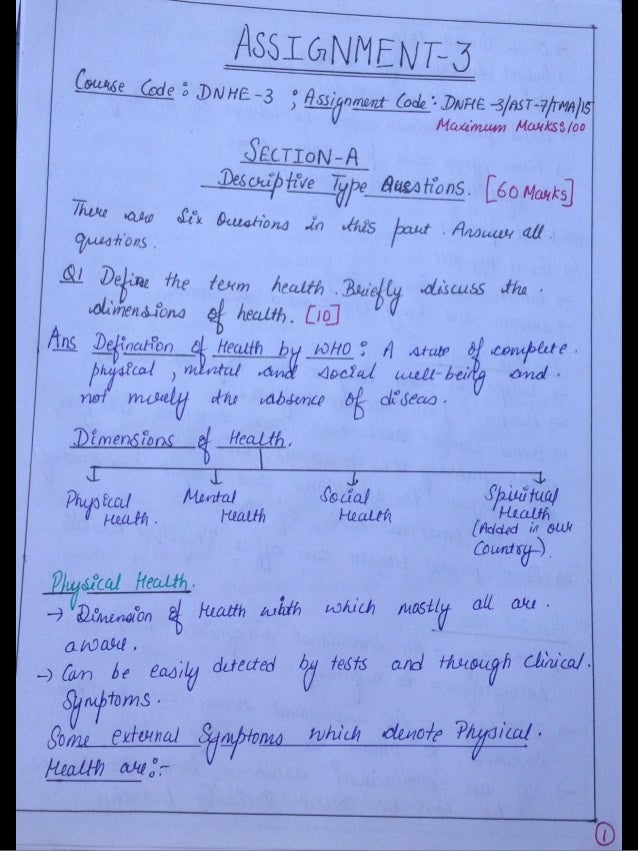 ASSIGNMENT-3
Course Code : DNHE-3 ; Assignment Code : DNHE-3/AST-7/TMA/15
Maximum Marks : 100
SECTION-A
Descriptive Type Questions. [60 Marks]
There are Six Questions in this part. Answer all.
questions.
Q1 Define the term health. Briefly discuss the.
dimensions of health. [10]
Ans Defination of Health by WHO : A state of complete.
physical, mental and social well-being and.
not merely the absence of diseas.
Dimensions of Health.
Physical Mental Social Spiritual
Health. Health Health Health
(Added in our
Country).
Physical Health.
→ Dimension of Health with which mostly all are.
aware.
→ Can be easily detected by tests and through clinical.
Symptoms.
Some external Symptoms which denote Physical.
Health are :-
1